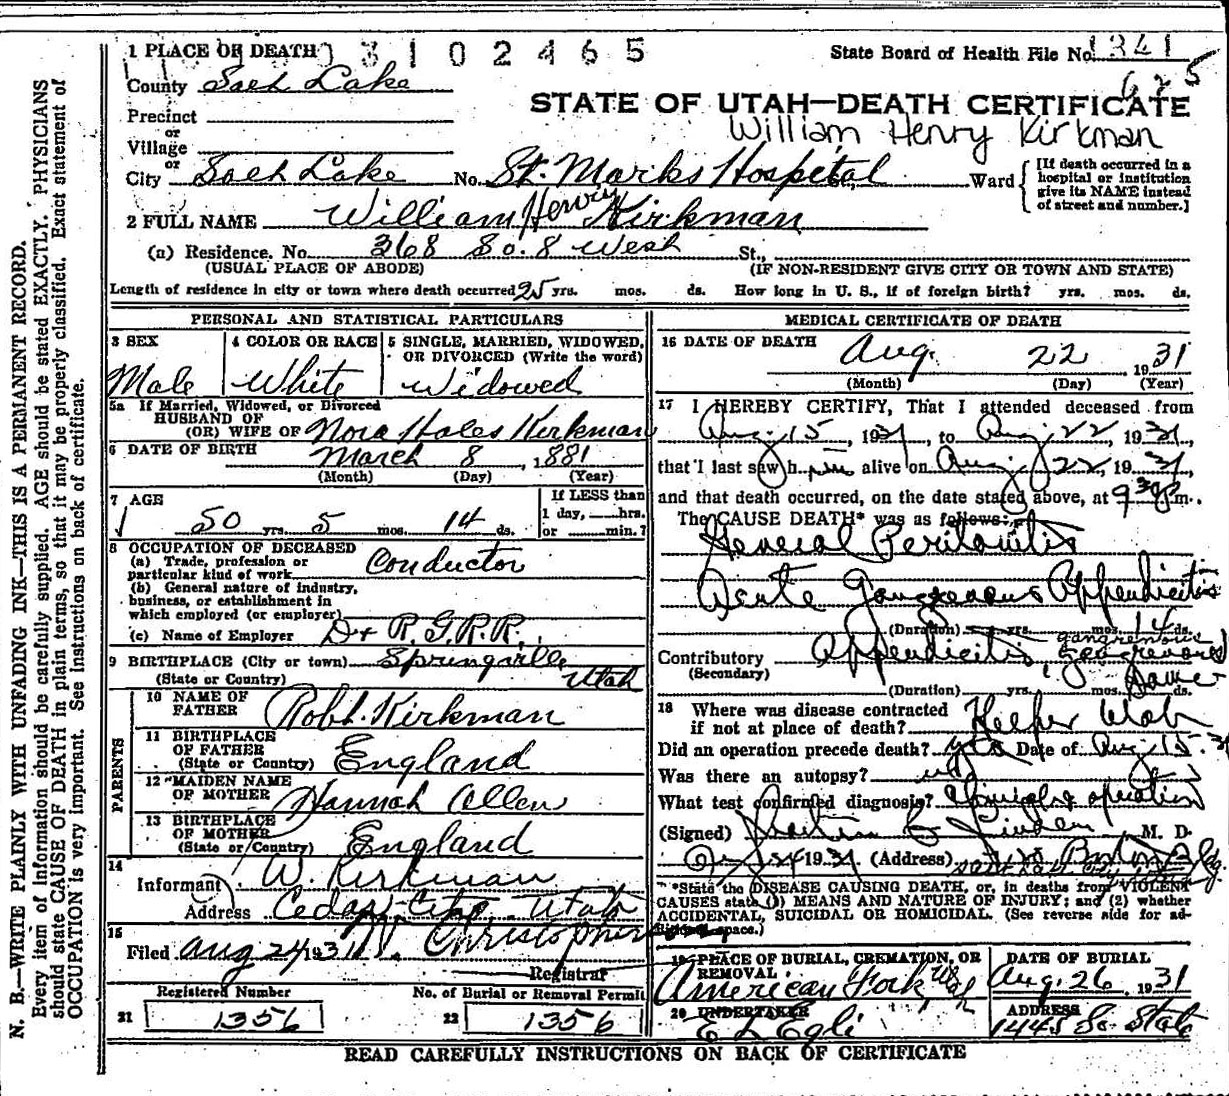 1 PLACE OF DEATH 03102465 State Board of Health File No. 1341
625
County Salt Lake
STATE OF UTAH—DEATH CERTIFICATE
Precinct
or
William Henry Kirkman
Village
or
City Salt Lake No. St. Marks Hospital St., Ward
[If death occurred in a
hospital or institution
give its NAME instead
of street and number.]
2 FULL NAME William Henry Kirkman
(a) Residence. No. 368 So. 8 West St.,
(USUAL PLACE OF ABODE) (IF NON-RESIDENT GIVE CITY OR TOWN AND STATE)
Length of residence in city or town where death occurred 25 yrs. mos. ds. How long in U. S., if of foreign birth? yrs. mos. ds.
PERSONAL AND STATISTICAL PARTICULARS
3 SEX
Male
4 COLOR OR RACE
White
5 SINGLE, MARRIED, WIDOWED,
OR DIVORCED (Write the word)
Widowed
5a If Married, Widowed, or Divorced
HUSBAND OF
(OR) WIFE OF Nora Hales Kirkman
6 DATE OF BIRTH March 8, 1881
(Month) (Day) (Year)
7 AGE
50 yrs. 5 mos. 14 ds.
If LESS than
1 day, hrs.
or min.?
8 OCCUPATION OF DECEASED
(a) Trade, profession or
particular kind of work Conductor
(b) General nature of industry,
business, or establishment in
which employed (or employer)
(c) Name of Employer D & R. G. R. R.
9 BIRTHPLACE (City or town) Springville
(State or Country) Utah
PARENTS
10 NAME OF
FATHER Robt. Kirkman
11 BIRTHPLACE
OF FATHER
(State or Country) England
12 MAIDEN NAME
OF MOTHER Hannah Allen
13 BIRTHPLACE
OF MOTHER
(State or Country) England
14
Informant W. Kirkman
Address Cedar City, Utah
15
Filed Aug 24 1931
Registrar
Registered Number No. of Burial or Removal Permit
21 1356 22 1356
MEDICAL CERTIFICATE OF DEATH
16 DATE OF DEATH Aug. 22 1931
(Month) (Day) (Year)
17 I HEREBY CERTIFY, That I attended deceased from
Aug. 15, 1931, to Aug. 22, 1931,
that I last saw him alive on Aug 22, 1931,
and that death occurred, on the date stated above, at 9 30 p m.
The CAUSE DEATH* was as follows:
General Peritonitis
Acute Gangrenous Appendicitis
(Duration) yrs. mos. 14 ds.
gangrenous
Contributory Appendicitis, gangrenous
(Secondary)
Same
(Duration) yrs. mos. ds.
18 Where was disease contracted
if not at place of death? Helper Utah
Did an operation precede death? yes Date of Aug. 15. 31
Was there an autopsy?
What test confirmed diagnosis? operation
(Signed) M. D.
1931 (Address) Boston Bldg.
Salt Lake City
*State the DISEASE CAUSING DEATH, or, in deaths from VIOLENT
CAUSES state (1) MEANS AND NATURE OF INJURY; and (2) whether
ACCIDENTAL, SUICIDAL OR HOMICIDAL. (See reverse side for ad-
ditional space.)
19 PLACE OF BURIAL, CREMATION, OR
REMOVAL.
American Fork Utah
DATE OF BURIAL
Aug. 26, 1931
20 UNDERTAKER
E L Egli
ADDRESS
1445 So State
READ CAREFULLY INSTRUCTIONS ON BACK OF CERTIFICATE
N. B.—WRITE PLAINLY WITH UNFADING INK—THIS IS A PERMANENT RECORD.
Every item of information should be carefully supplied. AGE should be stated EXACTLY. PHYSICIANS
should state CAUSE OF DEATH in plain terms, so that it may be properly classified. Exact statement of
OCCUPATION is very important. See instructions on back of certificate.